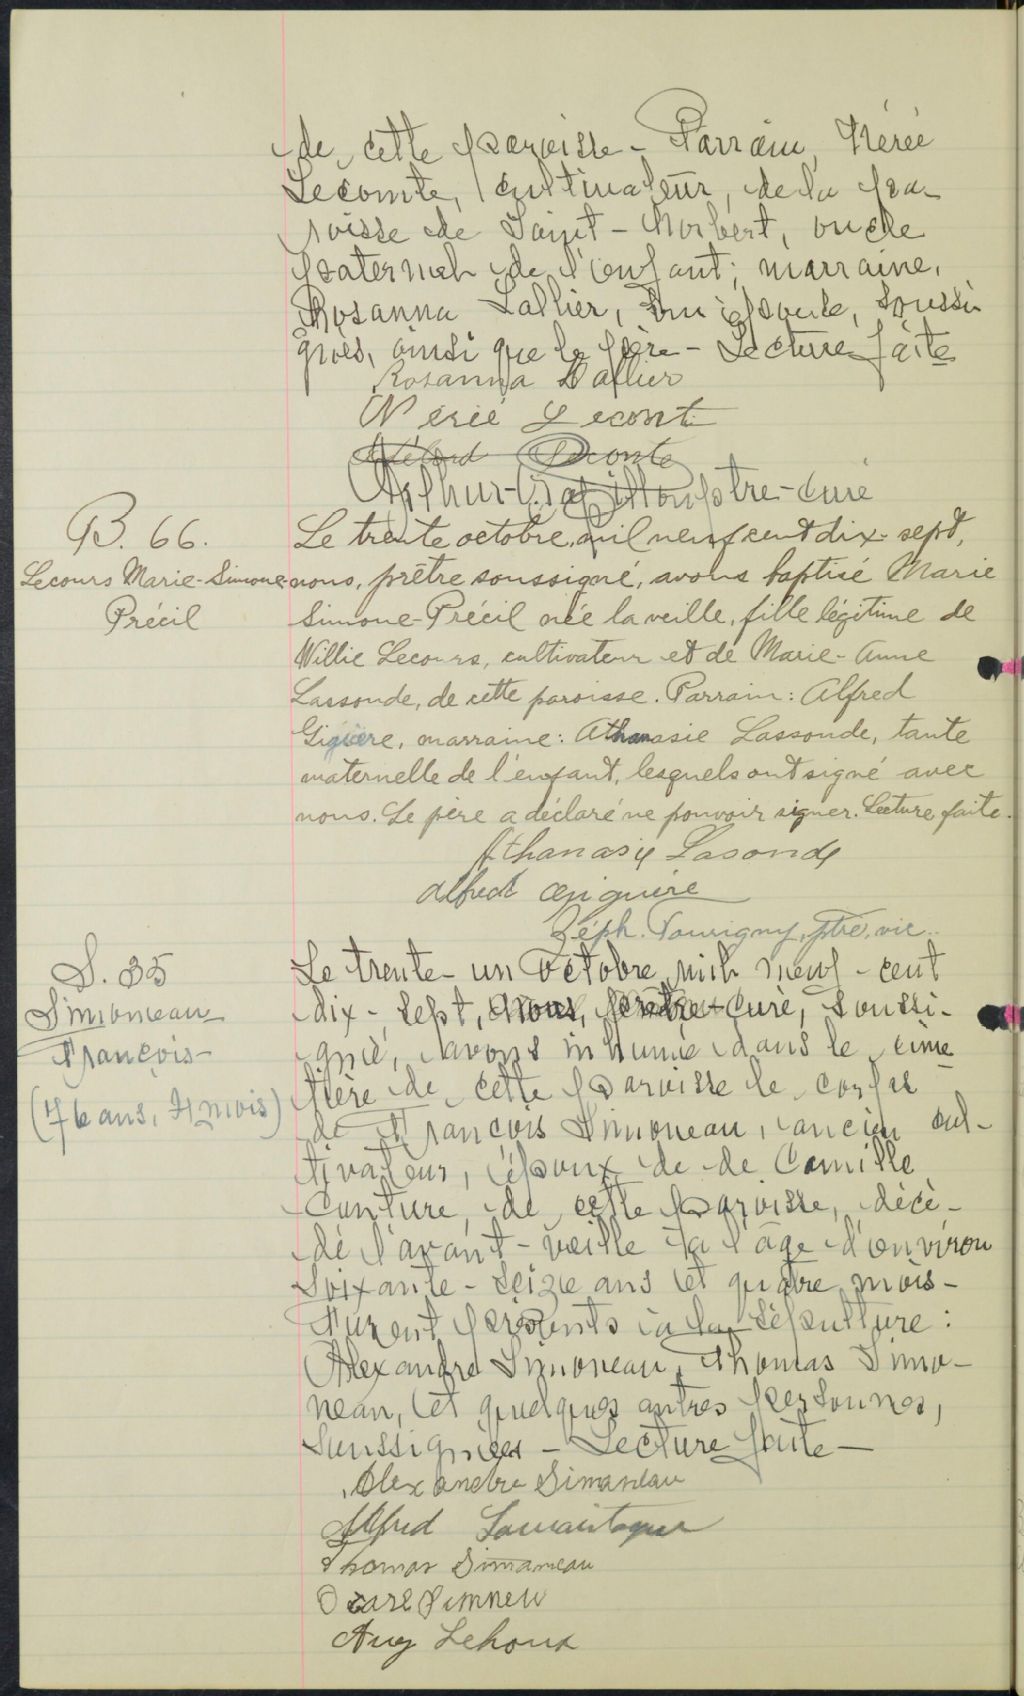 de cette paroisse - Parrain, Nérée
Lecomte, cultivateur, de la pa-
roisse de Saint-Norbert, oncle
paternel de l'enfant; marraine,
Rosanna Lallier, son épouse, soussi
gnés, ainsi que le père - Lecture faite
Rosanna Lallier
Néréé Lecomte
Lecomte
Arthur ptre-curé
B. 66.
Lecours Marie-Simone-
Précil
Le trente octobre, mil neuf cent dix-sept,
nous, prêtre soussigné, avons baptisé Marie
Simone-Précil née la veille, fille légitime de
Willie Lecours, cultivateur et de Marie-Anne
Lassonde, de cette paroisse. Parrain: Alfred
Giguère, marraine: Athanasie Lassonde, tante
maternelle de l'enfant, lesquels ont signé avec
nous. Le père a déclaré ne pouvoir signer. Lecture faite.
Athanasie Lasonde
Alfred Giguère
Zéph. Tourigny, ptre, vic.
S. 35
Simoneau
François
(76 ans, 4 mois)
Le trente-un octobre mil neuf-cent
dix-sept, nous, prêtre-curé, soussi-
gné, avons inhumé dans le cime
tière de cette paroisse le corps
de François Simoneau, ancien cul-
tivateur, époux de de Camille
Couture, de cette paroisse, décé-
dé l'avant-veille à l'âge d'environ
soixante-seize ans et quatre mois-
Furent présents à la sépulture:
Alexandre Simoneau, Thomas Simo-
neau, et quelques autres personnes,
soussignées - Lecture faite -
Alexandre Simaneau
Alfred Lamontagne
Thomas Simaneau
Aug Lehoux